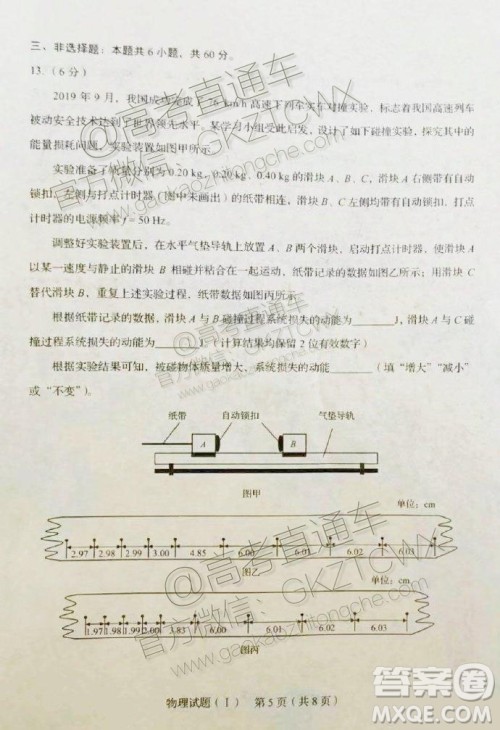 三、非选择题：本题共6小题，共60分。
13.（6分）
2019年9月，我国成功完成了76 km/h高速下列车实车对撞实验，标志着我国高速列车
被动安全技术达到了世界领先水平。某学习小组受此启发，设计了如下碰撞实验，探究其中的
能量损耗问题，实验装置如图甲所示。
实验准备了质量分别为0.20 kg、0.20 kg、0.40 kg的滑块A、B、C，滑块A右侧带有自动
锁扣，左侧与打点计时器（图中未画出）的纸带相连，滑块B、C左侧均带有自动锁扣，打点
计时器的电源频率f＝50 Hz。
调整好实验装置后，在水平气垫导轨上放置A、B两个滑块，启动打点计时器，使滑块A
以某一速度与静止的滑块B相碰并粘合在一起运动，纸带记录的数据如图乙所示；用滑块C
替代滑块B，重复上述实验过程，纸带数据如图丙所示
根据纸带记录的数据，滑块A与B碰撞过程系统损失的动能为________J，滑块A与C碰
撞过程系统损失的动能为________J。（计算结果均保留2位有效数字）
根据实验结果可知，被碰物体质量增大，系统损失的动能________（填“增大”“减小”
或“不变”）。
纸带 自动锁扣 气垫导轨
A B
图甲
单位：cm
2.97 2.98 2.99 3.00 4.85 6.00 6.01 6.02 6.03
图乙
单位：cm
1.97 1.98 1.99 2.00 3.83 6.00 6.01 6.02 6.03
图丙
物理试题（Ⅰ） 第5页（共8页）
@高考直通车
官方微信：GKZTCWX
www.gaokaozhitongche.com
@高考直通车
官方微信：GKZTCWX
www.gaokaozhitongche.com
@高考直通车
官方微信：GKZTCWX
www.gaokaozhitongche.com
答案圈
MXQE.COM